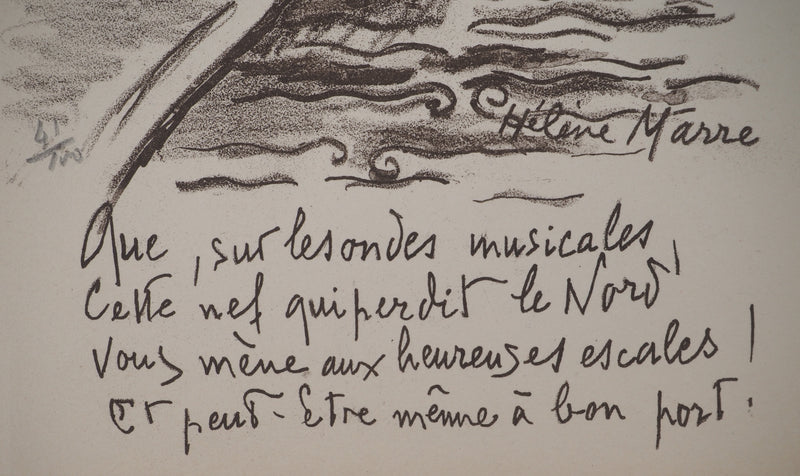 41/100
Hélène Marre
Que, sur les ondes musicales,
Cette nef qui perdit le Nord
Vous mène aux heureuses escales!
Et peut-être même à bon port.